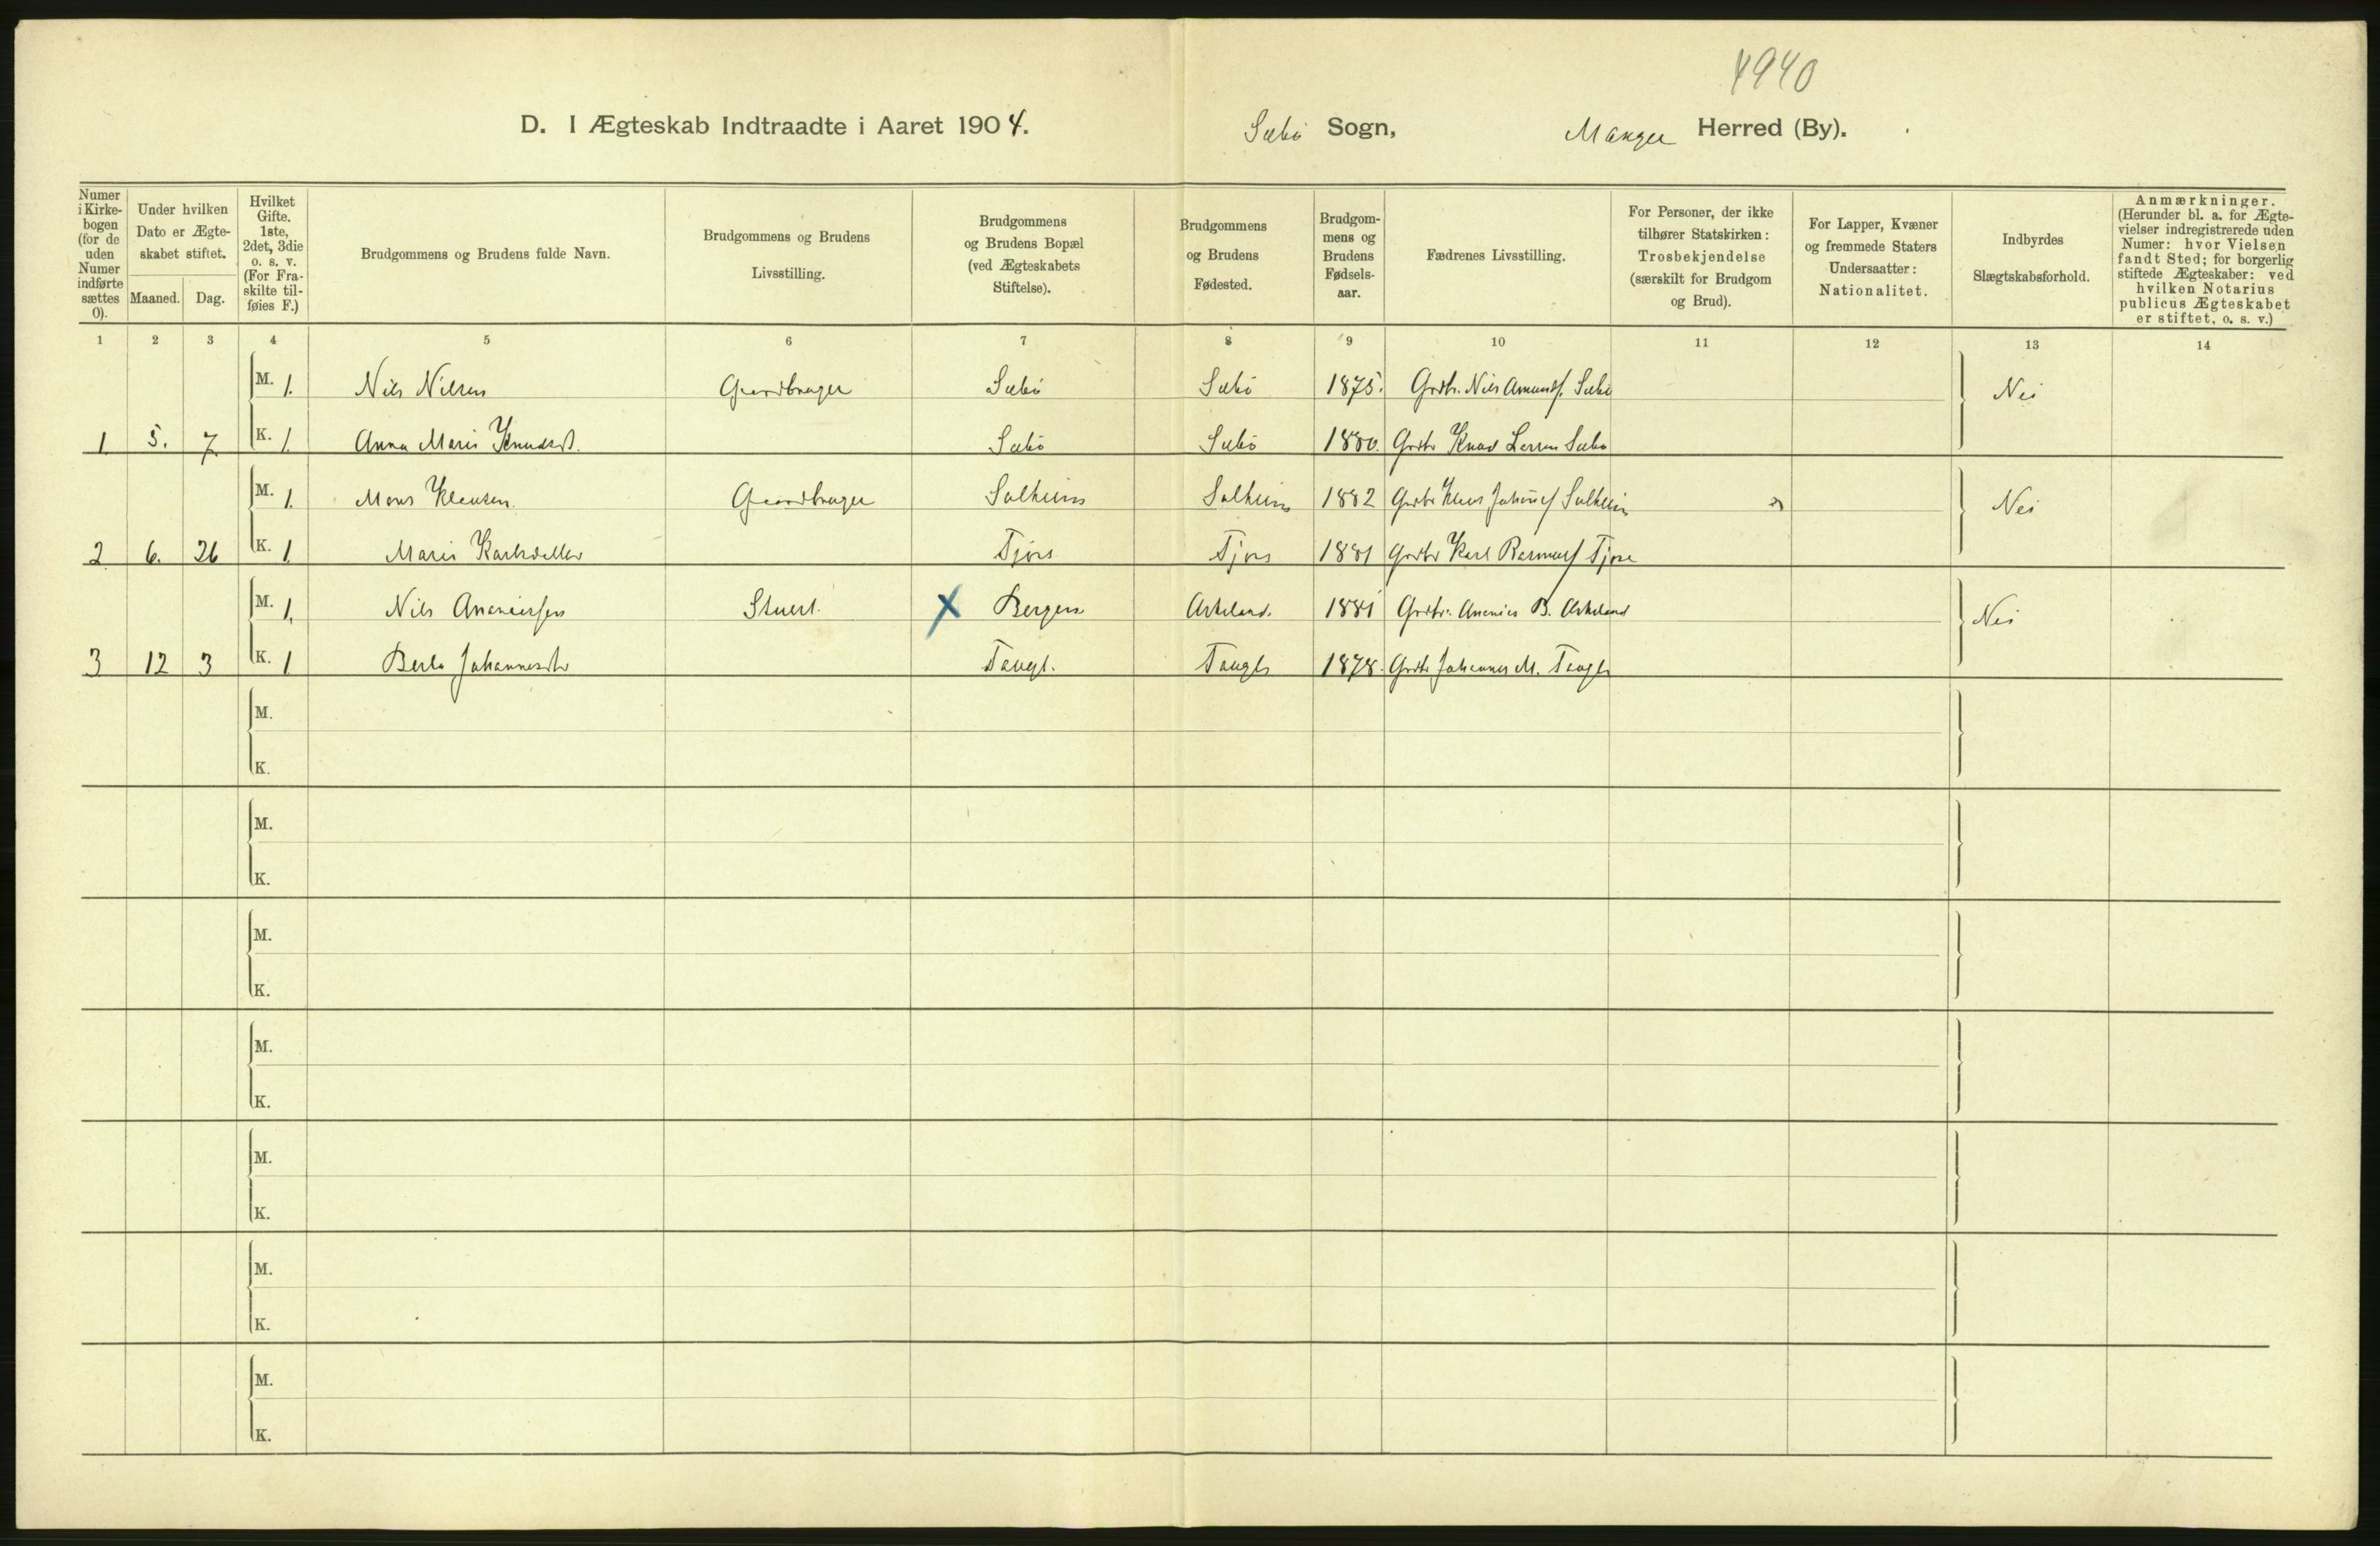 4940
D. I Ægteskab Indtraadte i Aaret 1904. Sæbø Sogn, Manger Herred (By).
Numer i Kirkebogen (for de uden Numer indførte sættes 0).
Under hvilken Dato er Ægteskabet stiftet.
Maaned. Dag.
Hvilket Gifte. 1ste, 2det, 3die o. s. v. (For Fraskilte tilføies F.)
Brudgommens og Brudens fulde Navn.
Brudgommens og Brudens Livsstilling.
Brudgommens og Brudens Bopæl (ved Ægteskabets Stiftelse).
Brudgommens og Brudens Fødested.
Brudgommens og Brudens Fødselsaar.
Fædrenes Livsstilling.
For Personer, der ikke tilhører Statskirken: Trosbekjendelse (særskilt for Brudgom og Brud).
For Lapper, Kvæner og fremmede Staters Undersaatter: Nationalitet.
Indbyrdes Slægtskabsforhold.
Anmærkninger. (Herunder bl. a. for Ægtevielser indregistrerede uden Numer: hvor Vielsen fandt Sted; for borgerlig stiftede Ægteskaber: ved hvilken Notarius publicus Ægteskabet er stiftet, o. s. v.)
1 2 3 4 5 6 7 8 9 10 11 12 13 14
M. 1. Nils Nilsen Gaardbruger Sæbø Sæbø 1875. Grdbr. Nils Amunds. Sæbø Nei
1 5. 7. K. 1. Anna Marie Knudsd. Sæbø Sæbø 1880. Grdbr Knud Larsen Sæbø
M. 1. Mons Klausen. Gaardbruger Solheim Solheim 1882 Grdbr Klaus Solheim Nei
2 6. 26 K. 1 Marie Karlsdatter Tjore Tjore 1881 Grdbr Karl Rasmus Tjore
M. 1. Nils Ananiassen Stuert. X Bergen Askeland. 1881 Grdbr. Ananias B. Askeland Nei
3 12 3 K. 1 Berta Johannesdtr Taugl. Taugl 1878. Grdbr Johannes M. Taugl
M.
K.
M.
K.
M.
K.
M.
K.
M.
K.
M.
K.
M.
K.